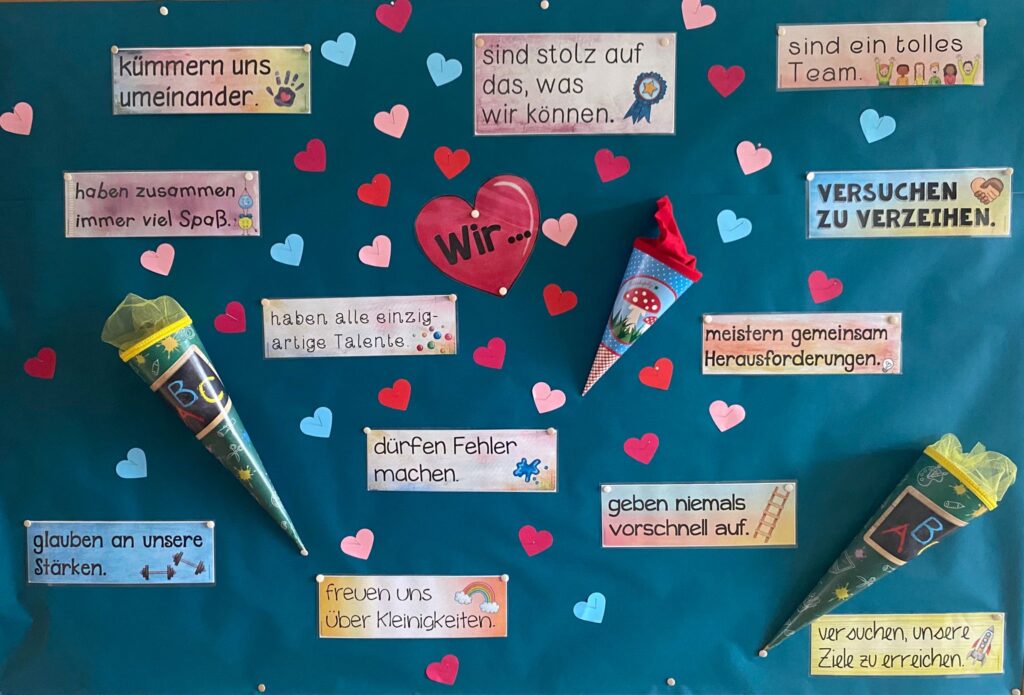 kümmern uns
umeinander.
sind stolz auf
das, was
wir können.
sind ein tolles
Team.
haben zusammen
immer viel Spaß.
Wir...
VERSUCHEN
ZU VERZEIHEN.
haben alle einzig-
artige Talente.
meistern gemeinsam
Herausforderungen.
ABC
dürfen Fehler
machen.
geben niemals
vorschnell auf.
AB
glauben an unsere
Stärken.
freuen uns
über Kleinigkeiten.
versuchen, unsere
Ziele zu erreichen.